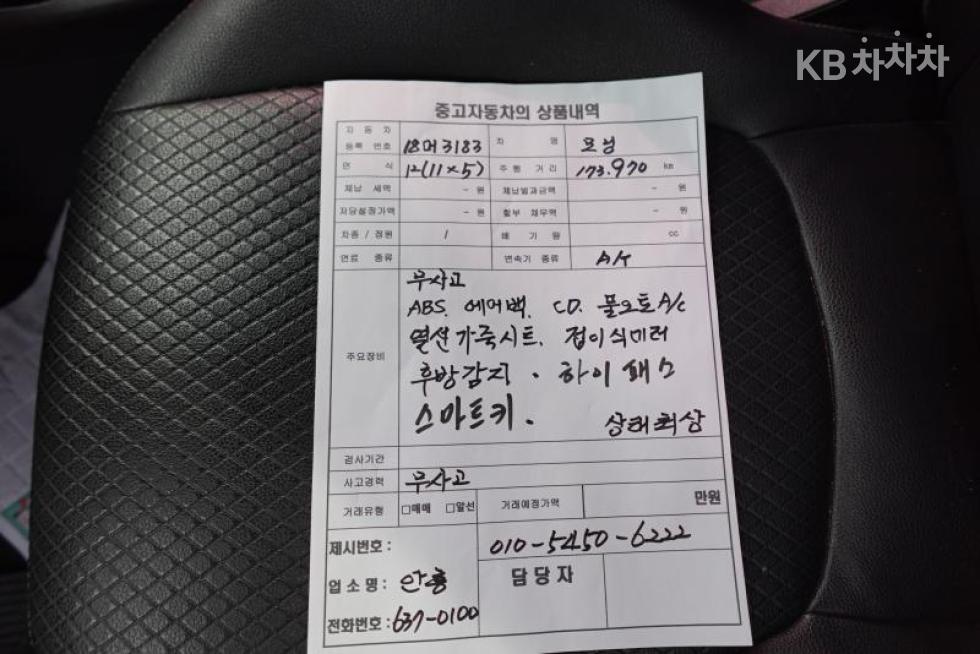 KB차차차
중고자동차의 상품내역
자 동 차 등록 번호 18머3183 차 명 모닝
연 식 12(11×5) 주행 거리 173.970 km
체납 세액 - 원 체납범과금액 - 원
저당설정가액 - 원 할부 채무액 - 원
차종 / 정원 / 배 기 량 cc
연료 종류 변속기 종류 A/T
무사고
ABS. 에어백. CD. 풀오토A/C
주요장비 열선가죽시트. 접이식미러
후방감지 . 하이패스
스마트키. 상태최상
검사기간
사고경력 무사고
거래유형 □매매 □알선 거래예정가액 만원
제시번호 : 010-5450-6222
업 소 명 : 안흥 담당자
전화번호 : 637-0100